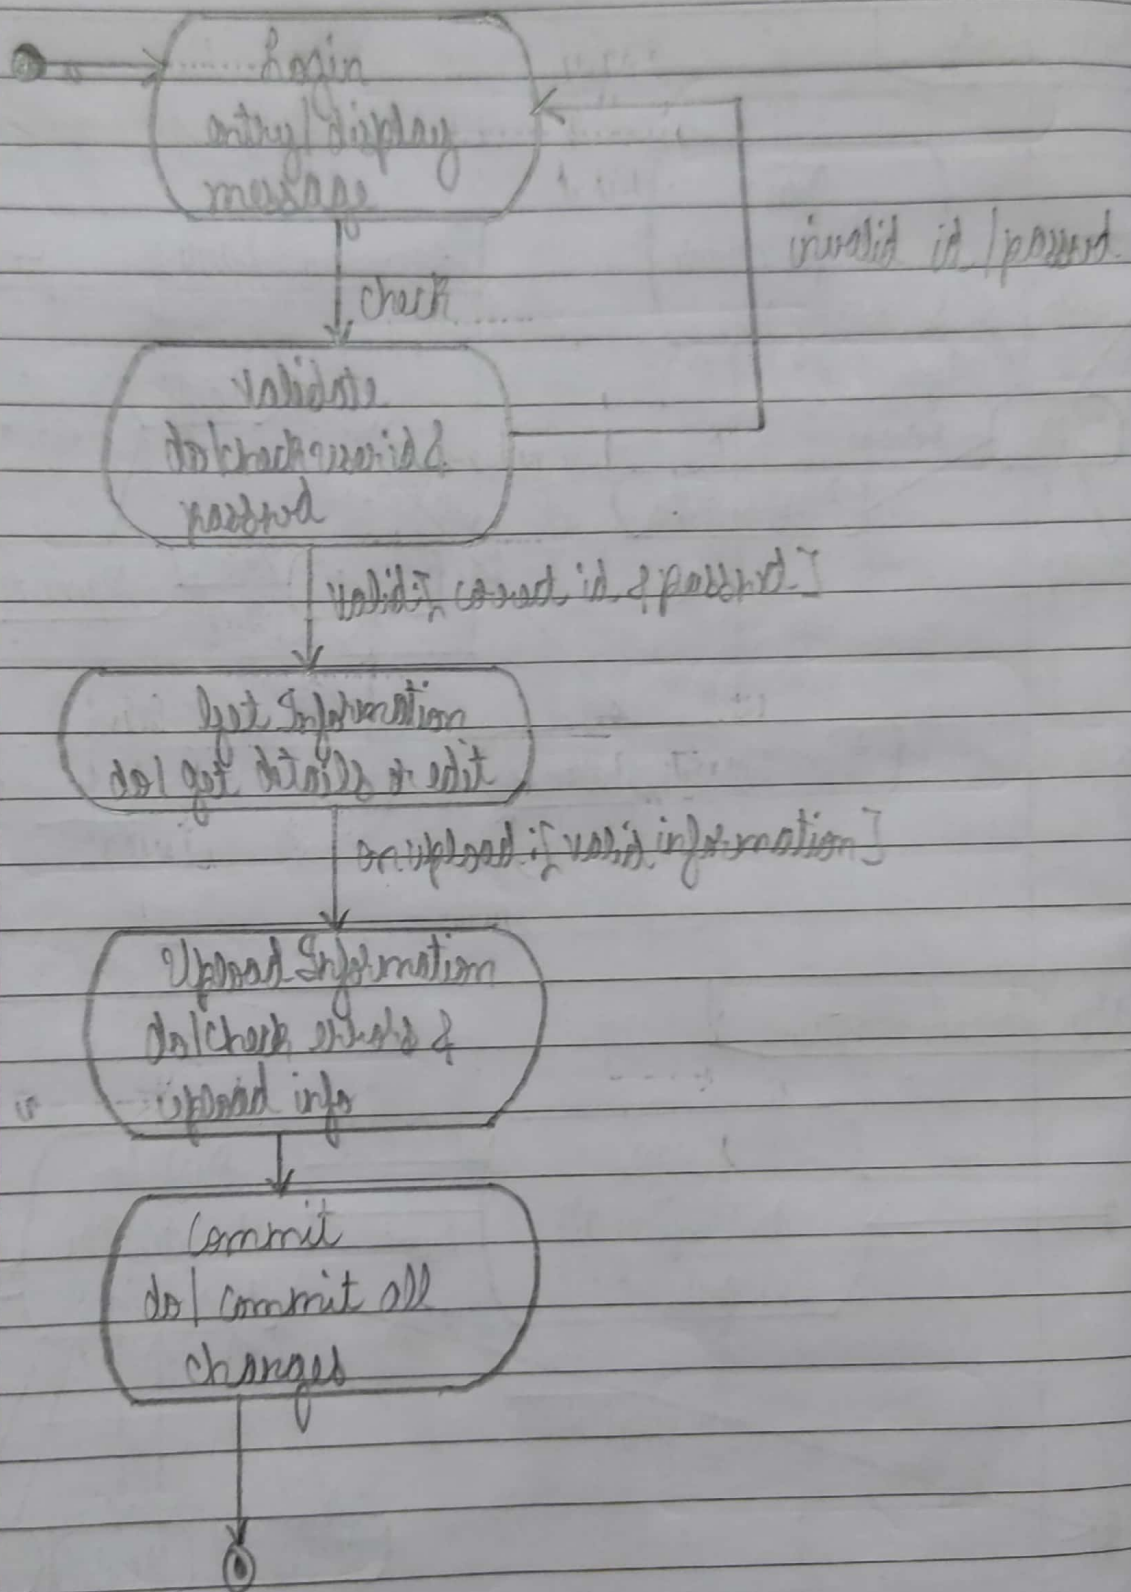 Login
entry/display
message
check
invalid id/passwd
Validate
do/check userid &
passwd
valid[correct id & passwd]
Get Information
do/ get details or edit
on upload:[valid information]
Upload Information
do/check errors &
upload info
Commit
do/ commit all
changes